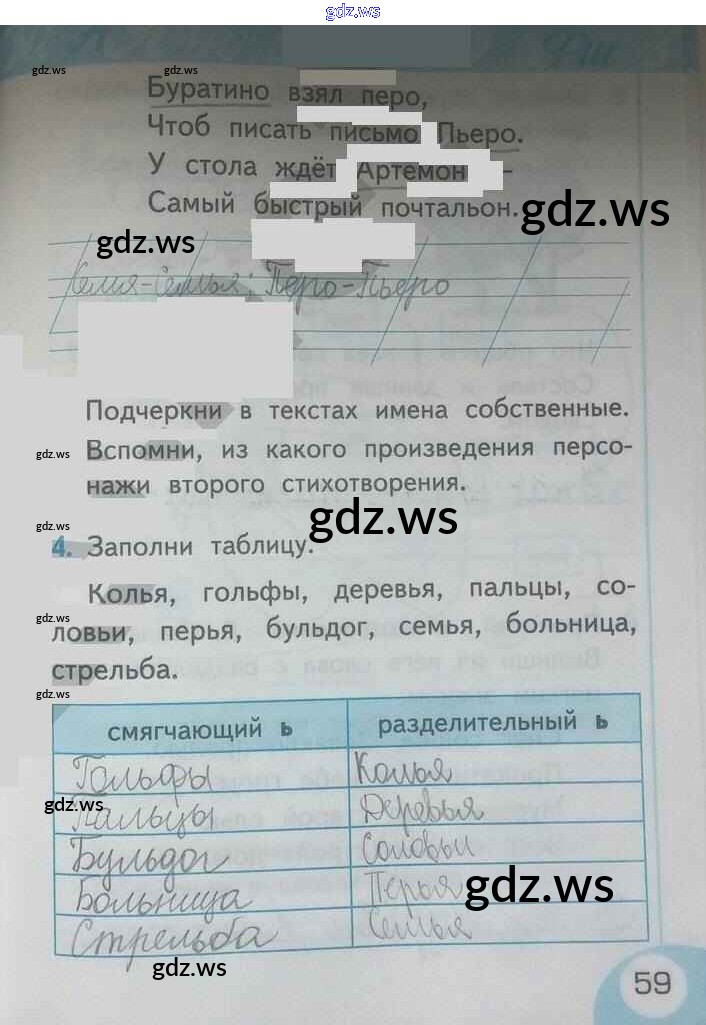 gdz.ws
gdz.ws gdz.ws
Буратино взял перо,
Чтоб писать письмо Пьеро.
У стола ждёт Артемон –
Самый быстрый почтальон.
gdz.ws
gdz.ws
Семя-Семья; Перо-Пьеро
Подчеркни в текстах имена собственные.
gdz.ws
Вспомни, из какого произведения персо-
нажи второго стихотворения.
gdz.ws
gdz.ws
4. Заполни таблицу.
Колья, гольфы, деревья, пальцы, со-
gdz.ws
ловьи, перья, бульдог, семья, больница,
стрельба.
gdz.ws
смягчающий ь разделительный ь
Гольфы Колья
gdz.ws
Пальцы Деревья
Бульдог Соловьи
gdz.ws
Больница Перья
Стрельба Семья
gdz.ws
59